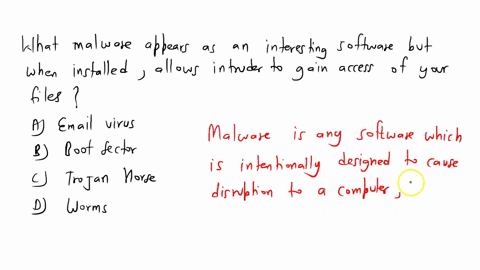 What malware appears as an interesting software but
when installed, allows intruder to gain access of your
files?
A) Email virus
B) Boot sector
C) Trojan Horse
D) Worms
Malware is any software which
is intentionally designed to cause
disruption to a computer,